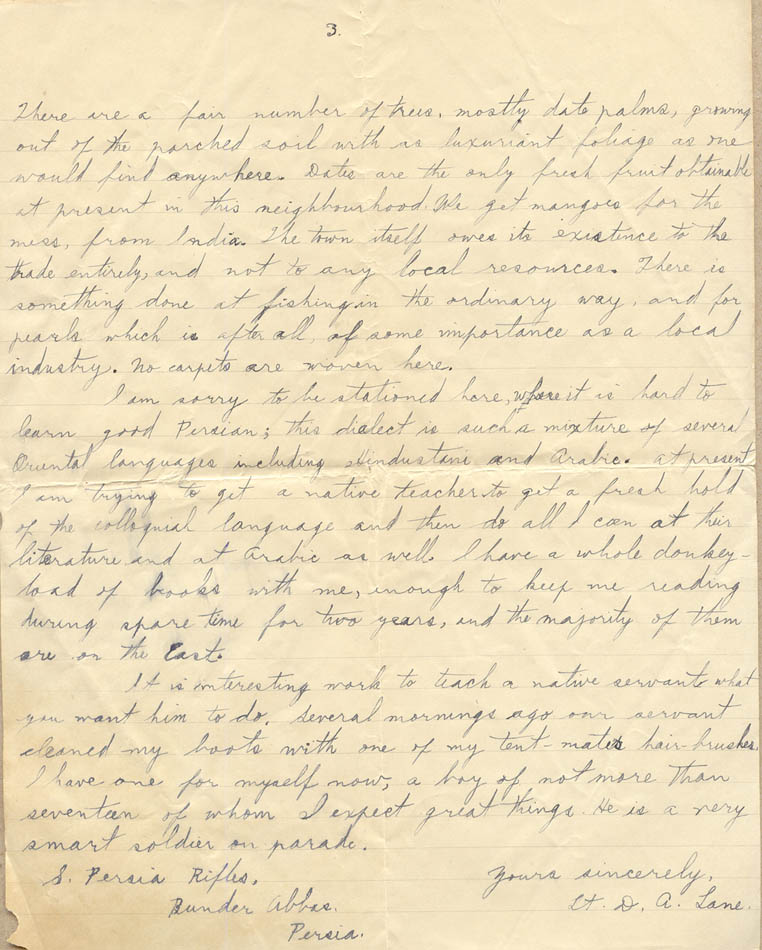 3.
There are a fair number of trees, mostly date palms, growing
out of the parched soil with as luxuriant foliage as one
would find anywhere. Dates are the only fresh fruit obtainable
at present in this neighbourhood. We get mangoes for the
mess, from India. The town itself owes its existence to the
trade entirely, and not to any local resources. There is
something done at fishing in the ordinary way, and for
pearls which is after all, of some importance as a local
industry. No carpets are woven here.
I am sorry to be stationed here, where it is hard to
learn good Persian; this dialect is such a mixture of several
Oriental languages including Hindustani and Arabic. At present
I am trying to get a native teacher to get a fresh hold
of the colloquial language and then do all I can at their
literature and at Arabic as well. I have a whole donkey-
load of books with me, enough to keep me reading
during spare time for two years, and the majority of them
are on the East.
It is interesting work to teach a native servant what
you want him to do. Several mornings ago our servant
cleaned my boots with one of my tent-mates hair-brushes.
I have one for myself now, a boy of not more than
seventeen of whom I expect great things. He is a very
smart soldier on parade.
S. Persia Rifles,
Yours sincerely,
Bunder Abbas.
Lt. D. A. Lane.
Persia.